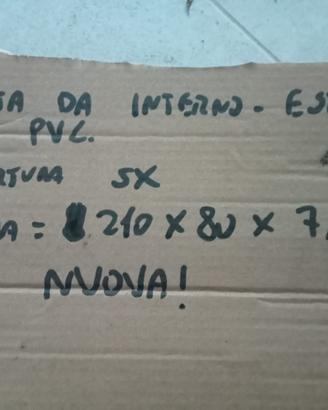 TA DA INTERNO - EST
PVC.
RTURA SX
A = 210 X 80 X 7
NUOVA!